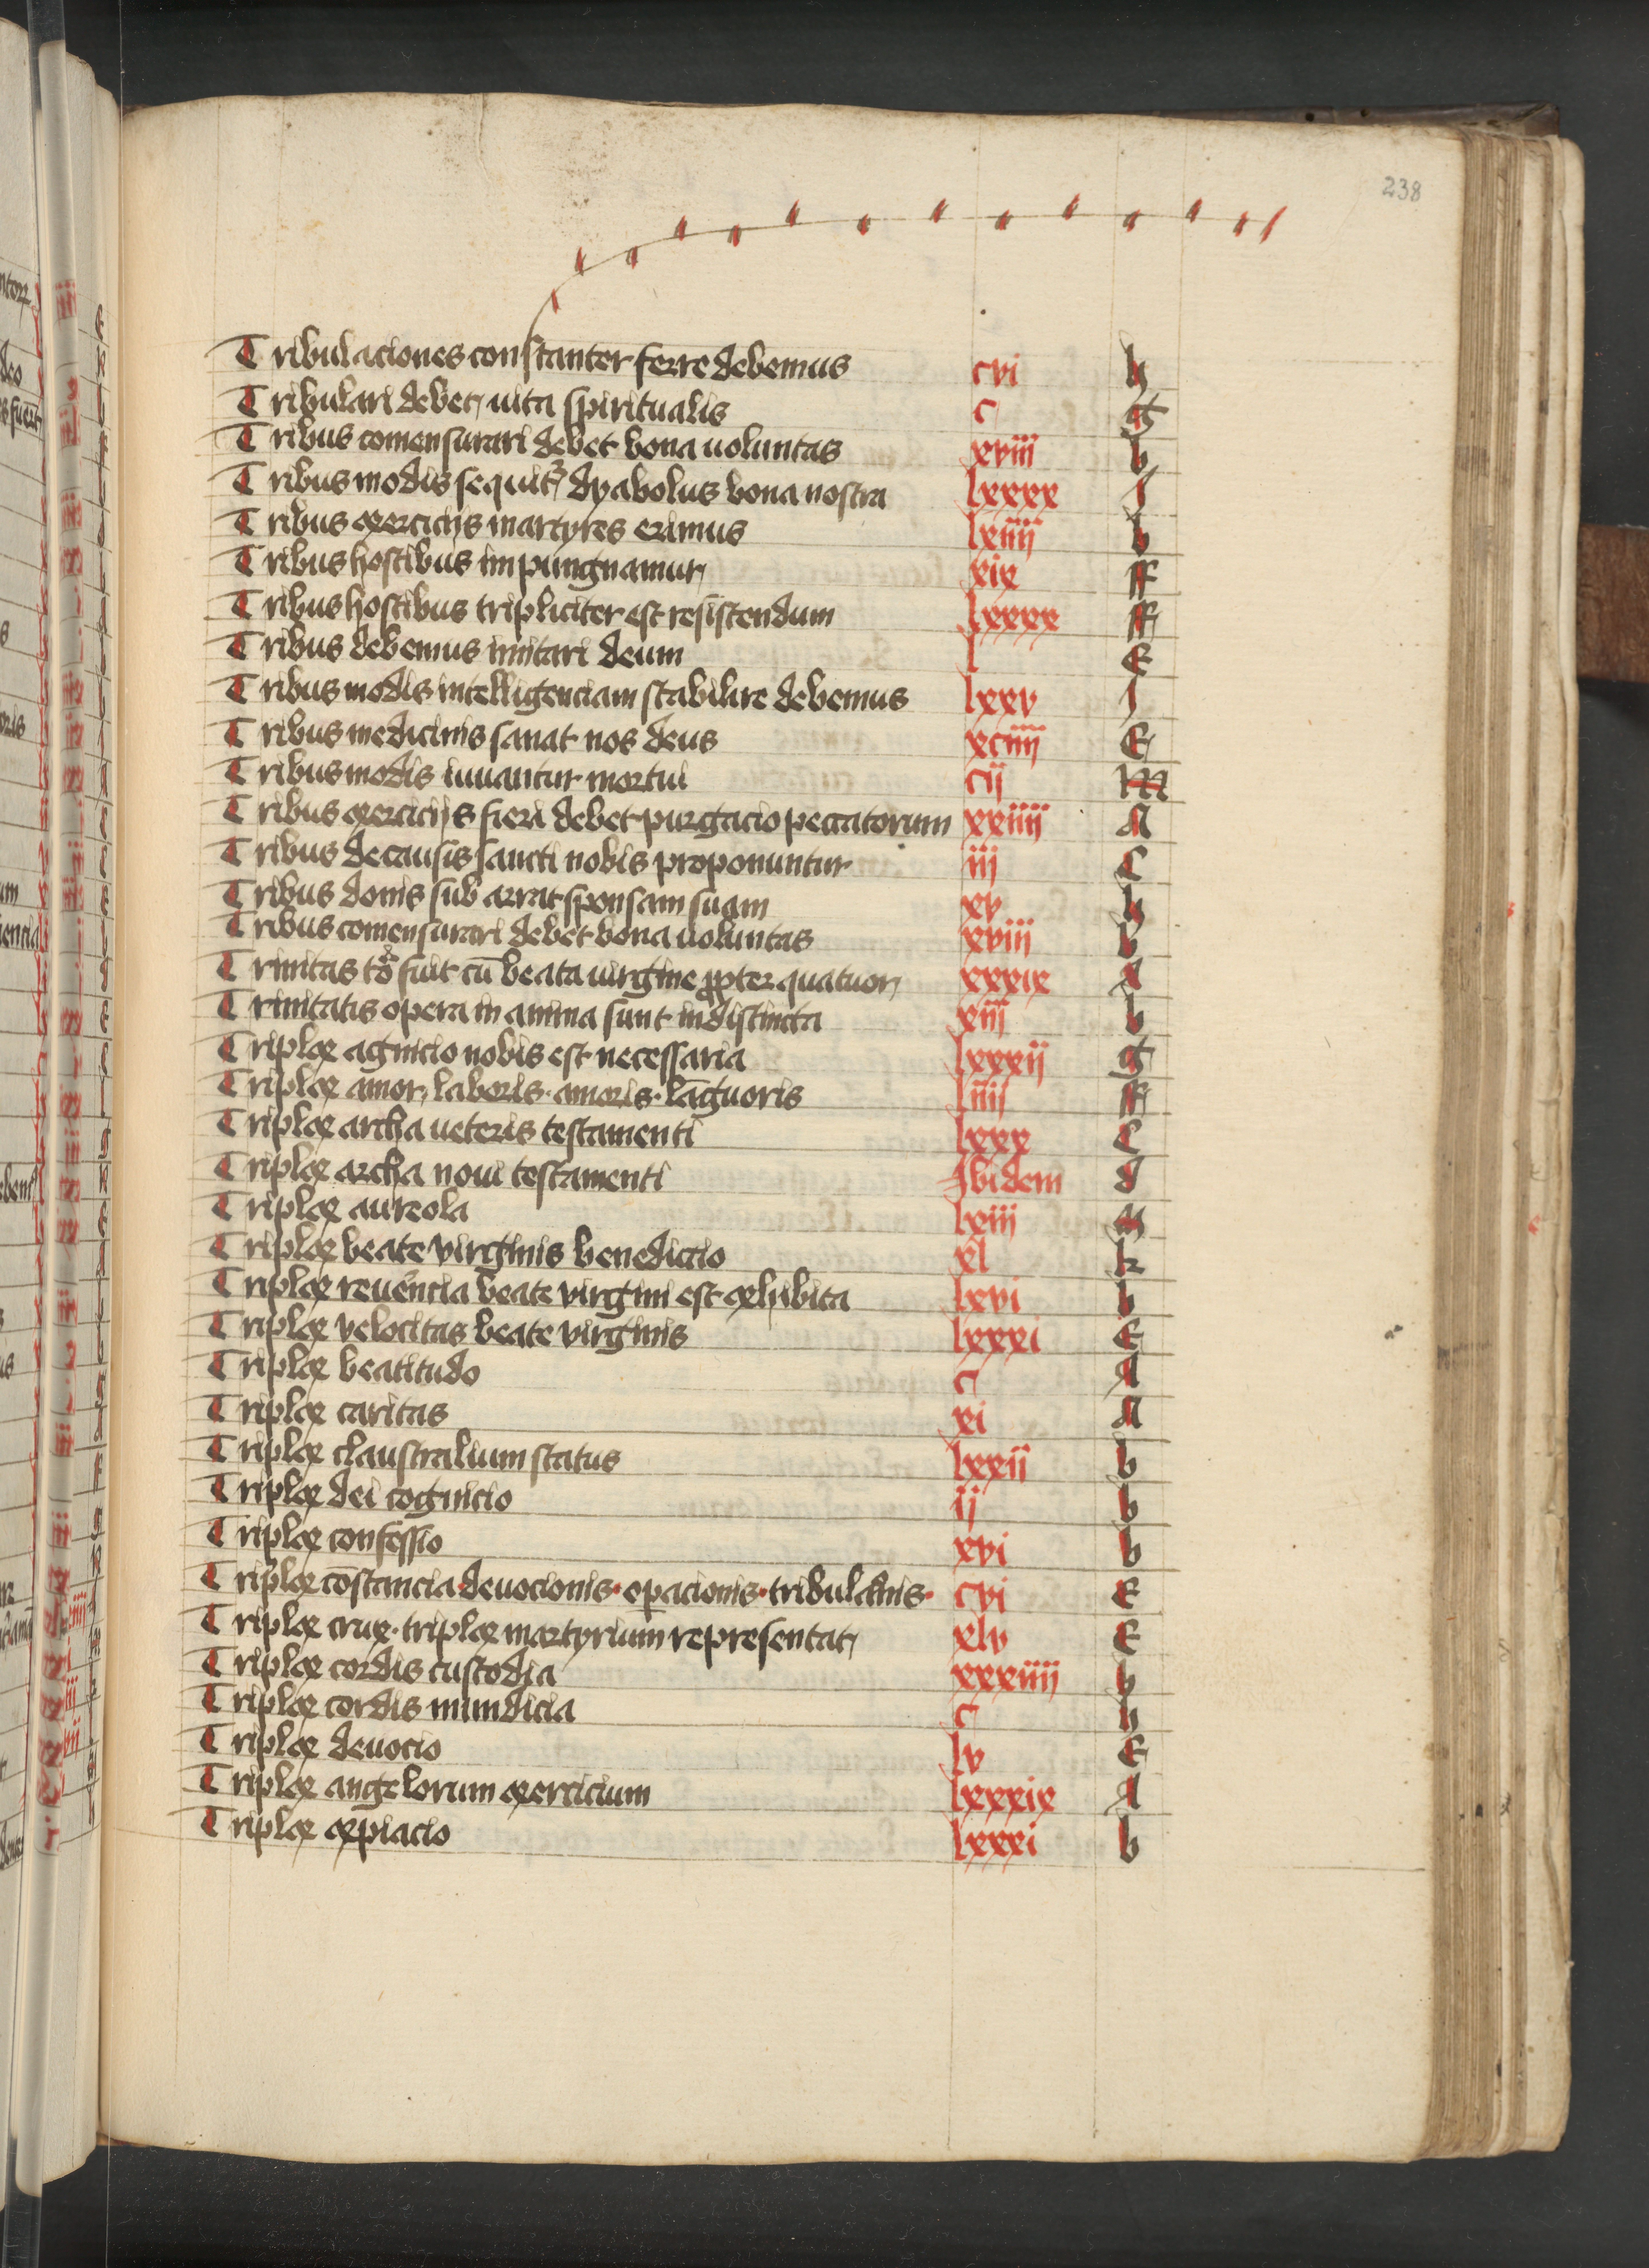 238
Tribulaciones constanter ferre debemus cvi h
Tribulari debet uita spiritualis c g
Tribus comensurari debet bona uoluntas xviii b
Tribus modis sequitr dyabolus bona nostra lxxxx i
Tribus exerciciis martyres erimus lxiiii b
Tribus hostibus impungnamur xix ff
Tribus hostibus tripliciter est resistendum lxxxx ff
Tribus debemus imitari deum l E
Tribus modis intelligenciam stabilire debemus lxxv i
Tribus medicinis sanat nos deus xciiii E
Tribus modis iuuantur mortui cij m
Tribus exerciciis fieri debet purgacio peccatorum xxiiii A
Tribus de causis sancti nobis proponuntur iij C
Tribus donis sub arrat sponsam suam xv h
Tribus comensurari debet bona uoluntas xviii b
Trinitas fuit cū beata uirgine propter quatuor xxxix d
Trinitatis opera in anima sunt indistincta xiij b
Triplex agnicio nobis est necessaria lxxxij g
Triplex amor, laboris · amoris · lāguoris liiij ff
Triplex archa ueteris testamenti lxxx C
Triplex archa noui testamenti Ibidem d
Triplex aureola lxiij m
Triplex beate virginis benedictio xl k
Triplex reuēncia beate virgini est exhibita lxvi b
Triplex velocitas beate virginis lxxxi E
Triplex beatitudo c d
Triplex caritas xi A
Triplex claustralium status lxxij b
Triplex dei cognicio ij b
Triplex confessio xvi b
Triplex cōstancia deuocionis · opacionis · tribulacōnis · cvi E
Triplex crux · triplex martyrium representat xlv E
Triplex cordis custodia xxxiiij b
Triplex cordis mundicia c h
Triplex deuocio lv E
Triplex angelorum exercicium lxxxix d
Triplex expiacio lxxxi b